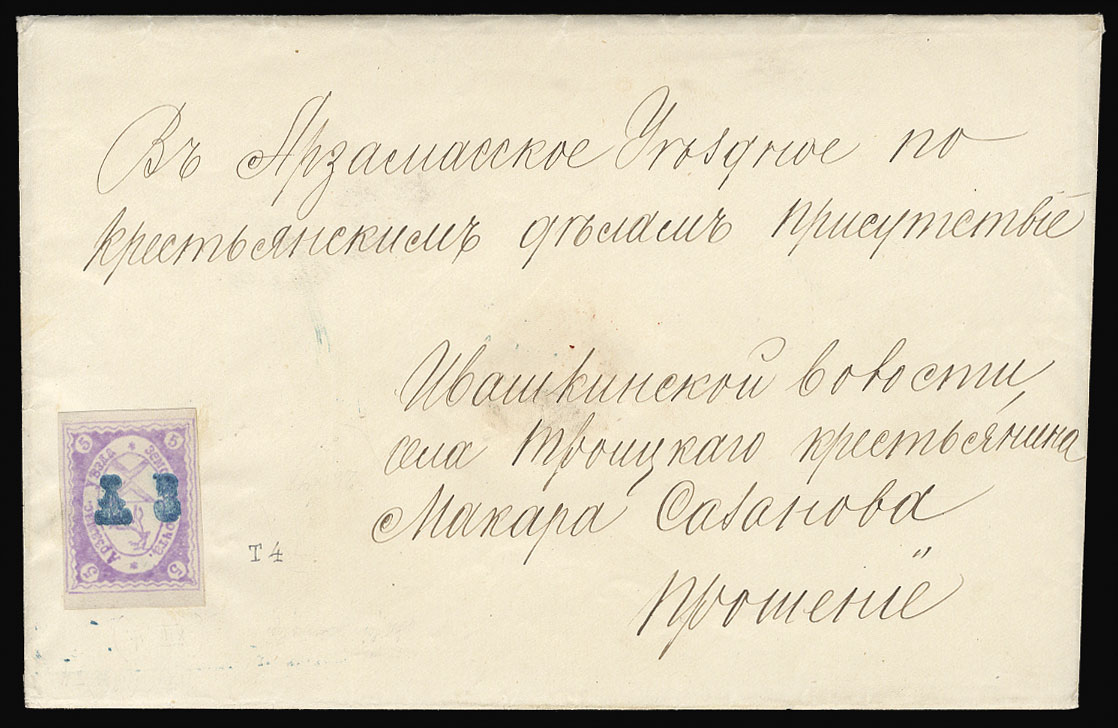 Въ Арзамасское Уѣздное по
крестьянскимъ дѣламъ присутствіе
Ивашкинской волости,
села Троицкаго крестьянина
Макара Сазанова
Прошеніе
5 5
Арзамас. Уѣзд. Земс. почта.
5 5
Т4